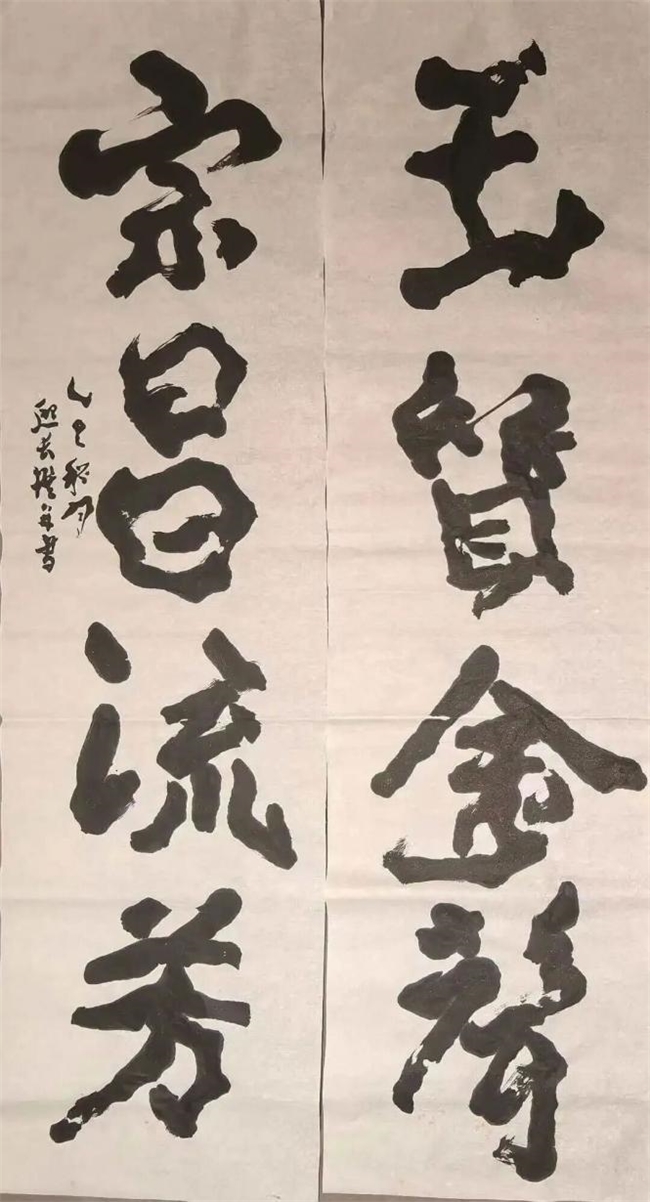 玉質金聲
宗昌流芳
乙巳秋月
書